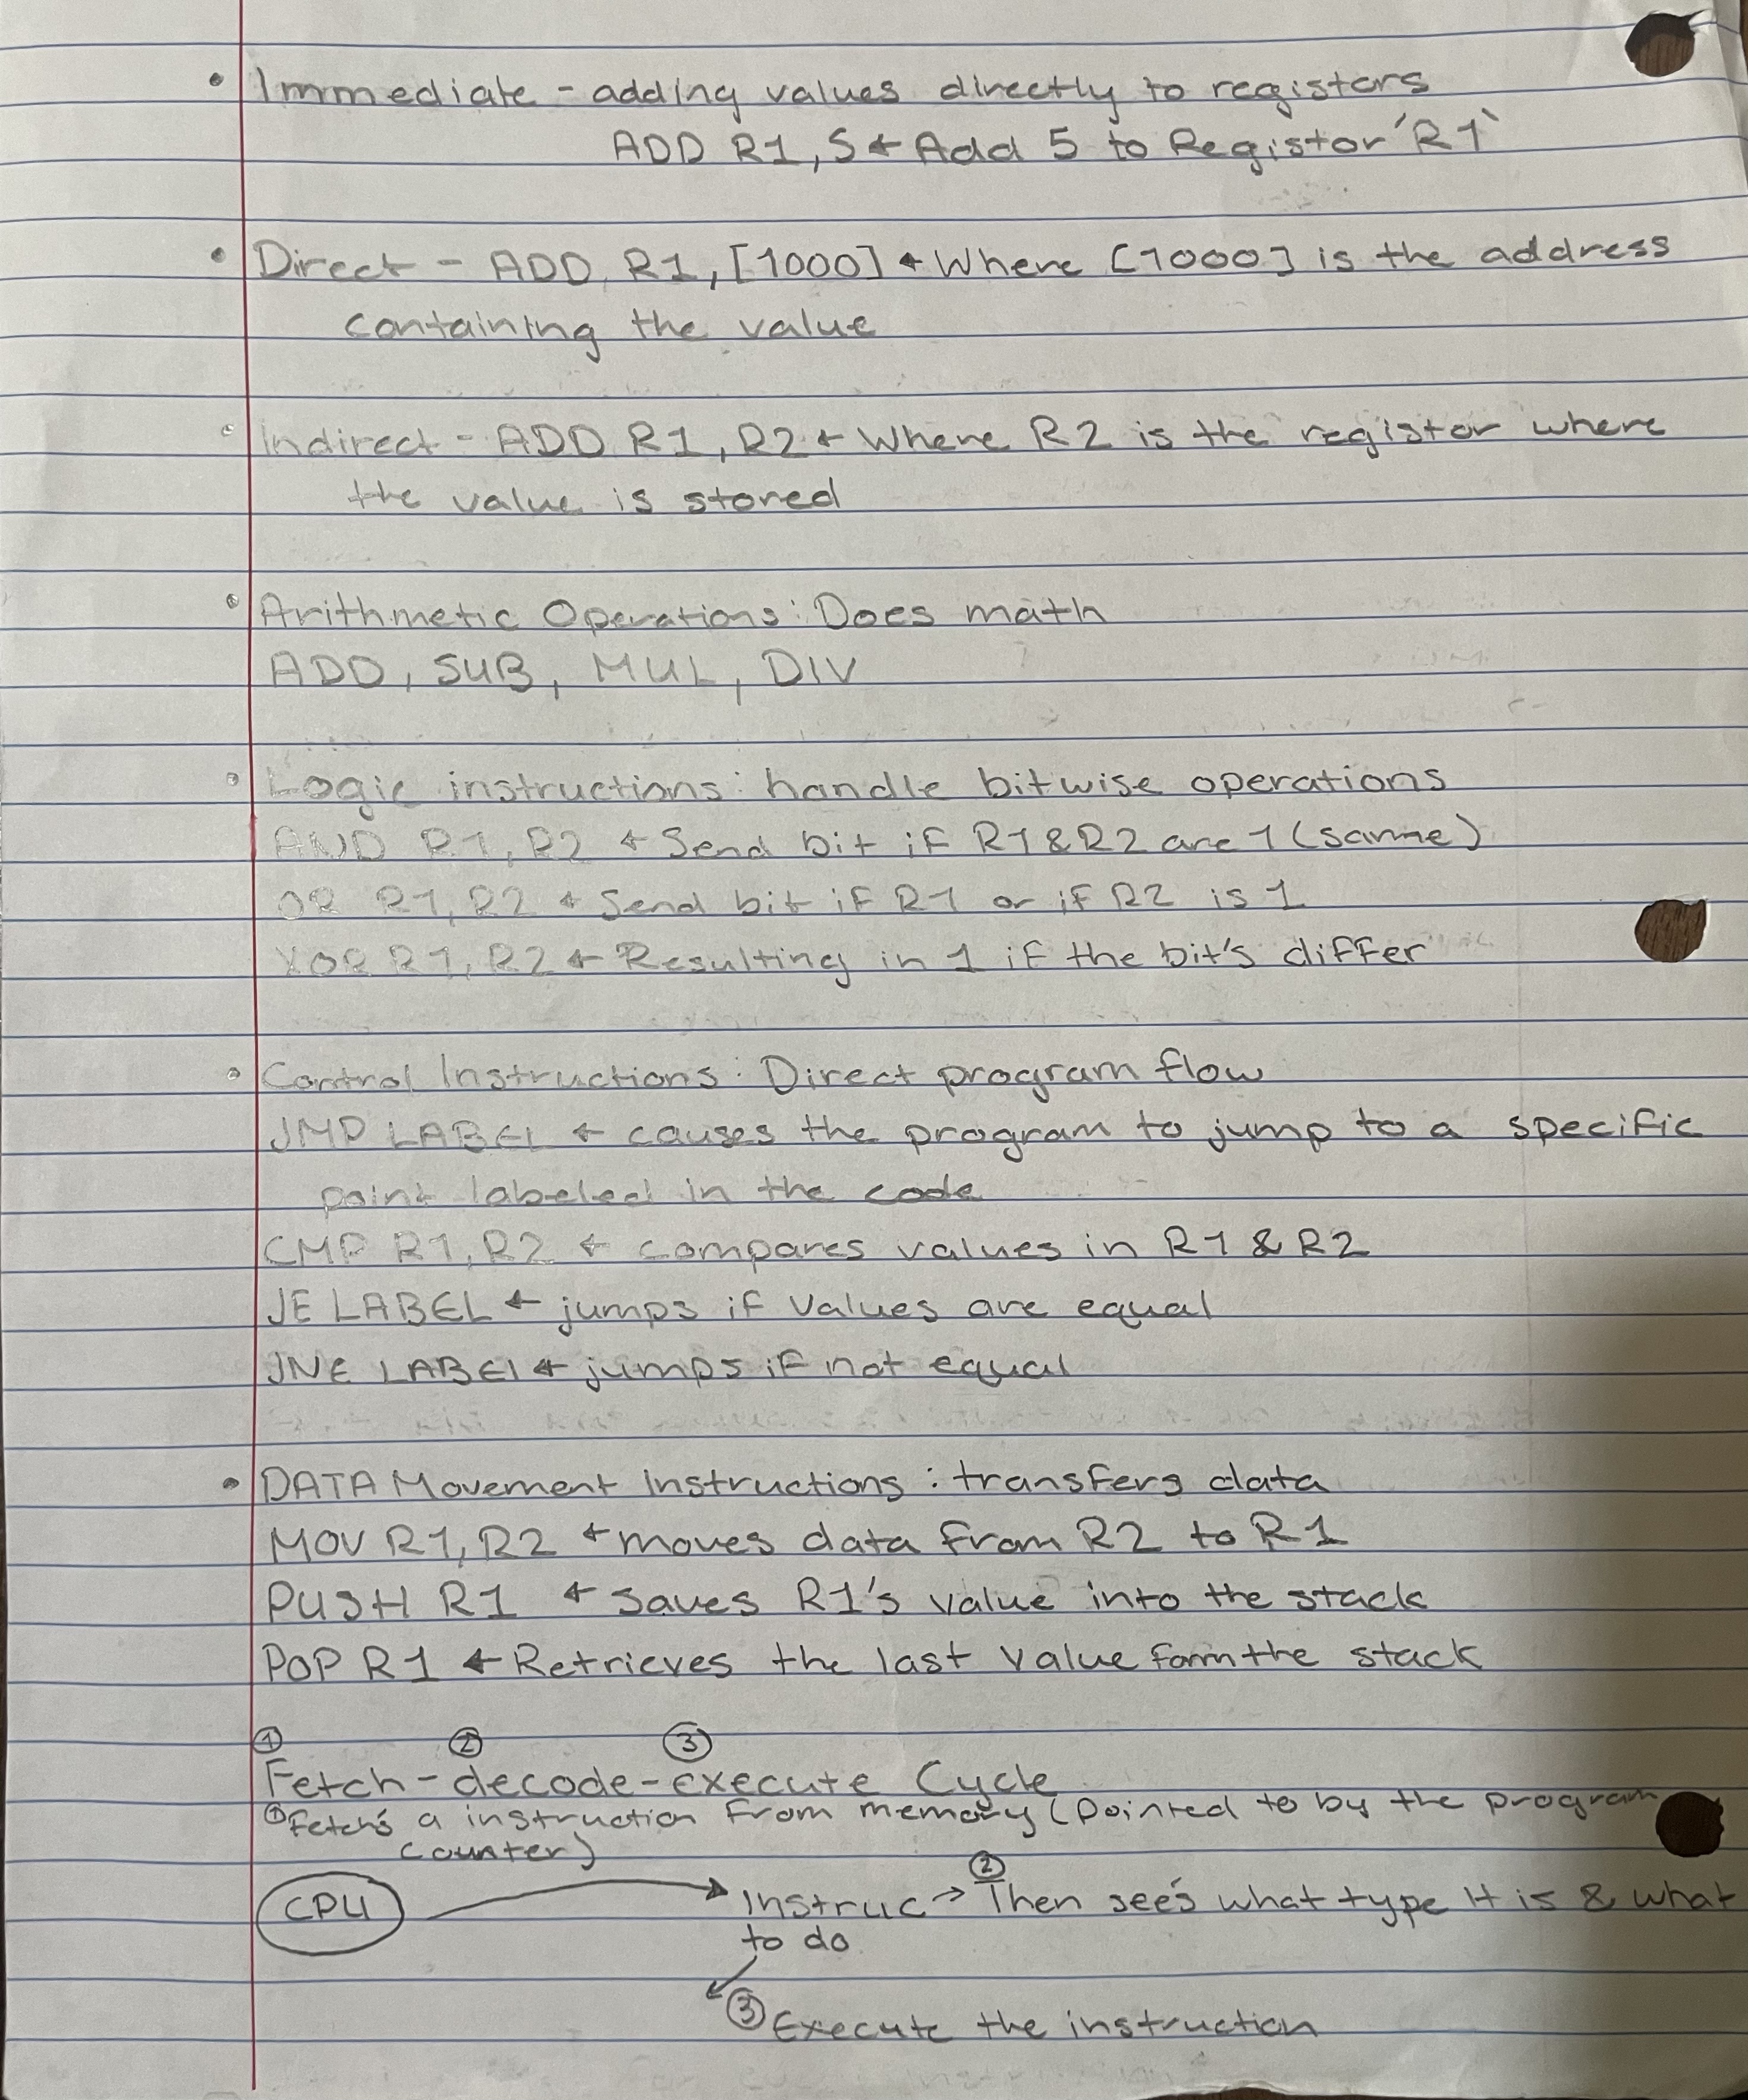 • Immediate - adding values directly to registors
ADD R1, 5 ← Add 5 to Registor 'R1'
• Direct - ADD R1, [1000] ← Where [1000] is the address
containing the value
• Indirect - ADD R1, R2 ← Where R2 is the registor where
the value is stored
• Arithmetic Operations: Does math
ADD, SUB, MUL, DIV
• Logic instructions: handle bitwise operations
AND R1, R2 ← Send bit if R1 & R2 are 1 (same)
OR R1, R2 ← Send bit if R1 or if R2 is 1
XOR R1, R2 ← Resulting in 1 if the bit's differ
• Control Instructions: Direct program flow
JMP LABEL ← causes the program to jump to a specific
point labeled in the code
CMP R1, R2 ← compares values in R1 & R2
JE LABEL ← jumps if values are equal
JNE LABEL ← jumps if not equal
• DATA Movement Instructions: transfers data
MOV R1, R2 ← moves data from R2 to R1
PUSH R1 ← saves R1's value into the stack
POP R1 ← Retrieves the last value form the stack
① ② ③
Fetch - decode - execute Cycle
① Fetch's a instruction from memory (pointed to by the program
counter)
②
CPU → Instruc → Then see's what type it is & what
to do
③ Execute the instruction